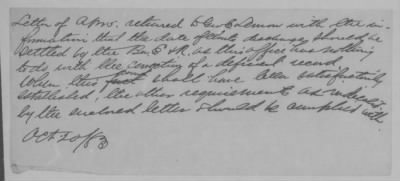 Letter of Apro. returned to Geo. C. Lemon with the in-
formation that the date of Client's discharge should be
settled by the Bu. E & R. as this office has nothing
to do with the correcting of a defective record
When this fact shall have been satisfactorily
established, the other requirement as indicated
by the enclosed letter should be complied with
Oct 20/83